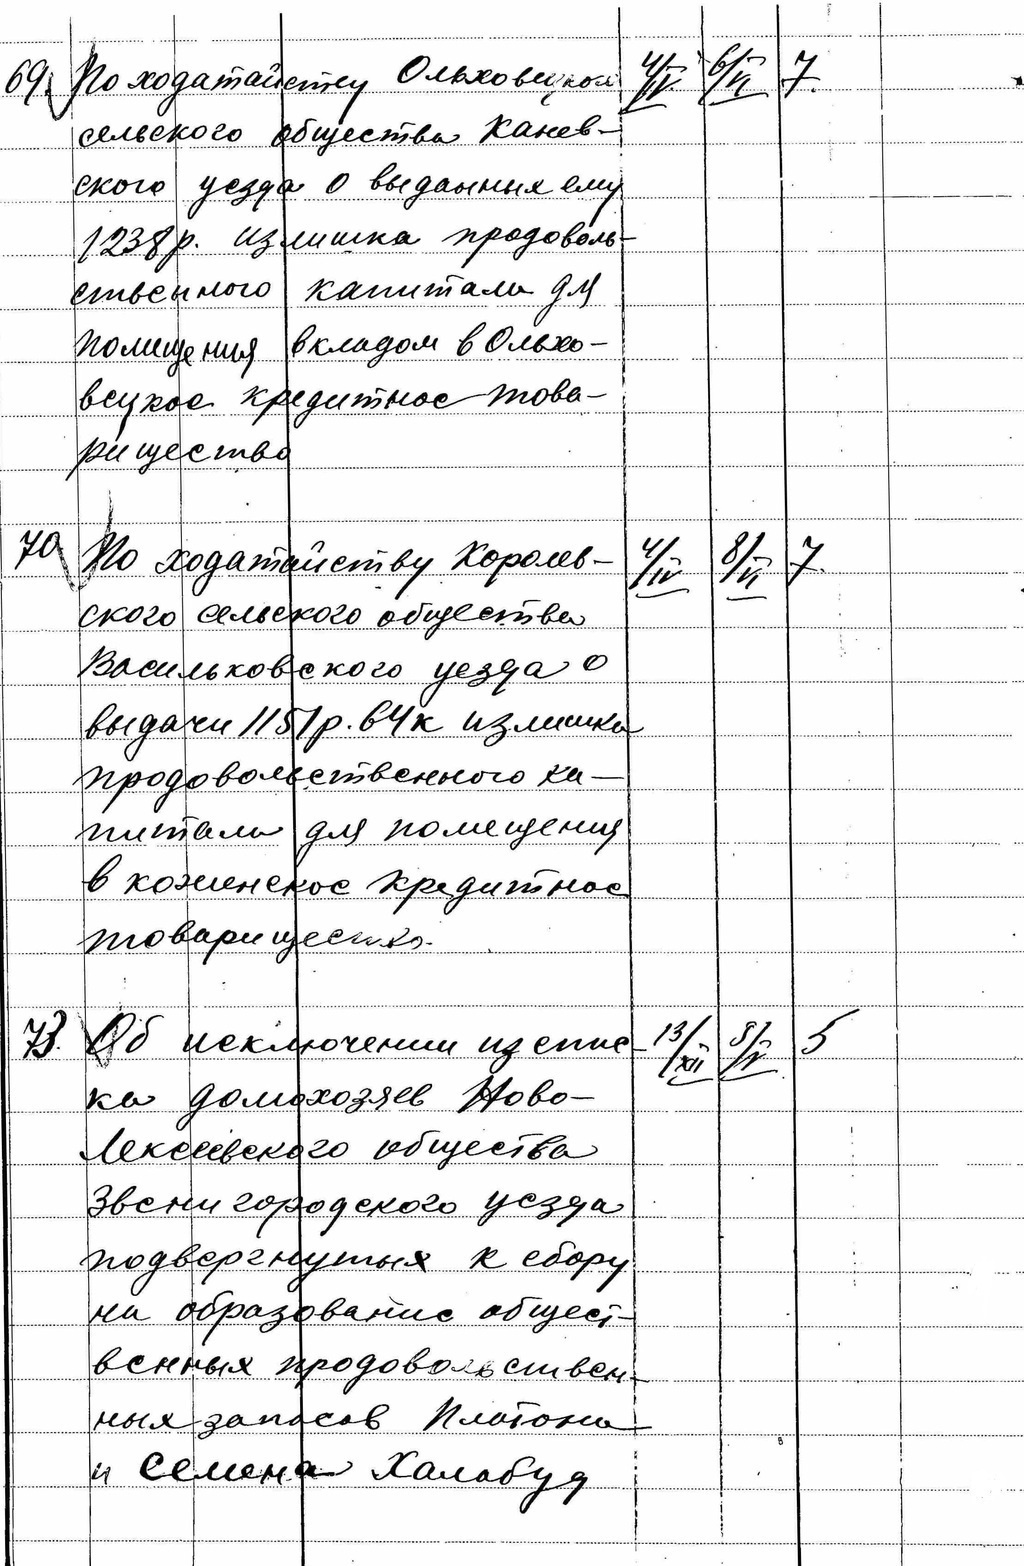 69. По ходатайству Ольховецкой 4/IV 6/VI 7.
сельского общества Канев-
ского уезда о выдаыния ему
1238 р. излишка продоволь-
ственного капитала для
помещения вкладом в Ольхо-
вецкое кредитное това-
рищество
70 По ходатайству Королев- 4/IV 8/VI 7.
ского сельского общества
Васильковского уезда о
выдачи 1151 р. 64 к излишка
продовольственного ка-
питала для помещения
в кожинское кредитное
товарищество.
Об исключении из спис- 13/XII 8/V 5
ка домохозяев Ново-
Лексеевского общества
Звенигородского уезда
подвергнутых к сбору
на образование общест-
венных продовольствен-
ных запасов Платона
и Семена Халабуд